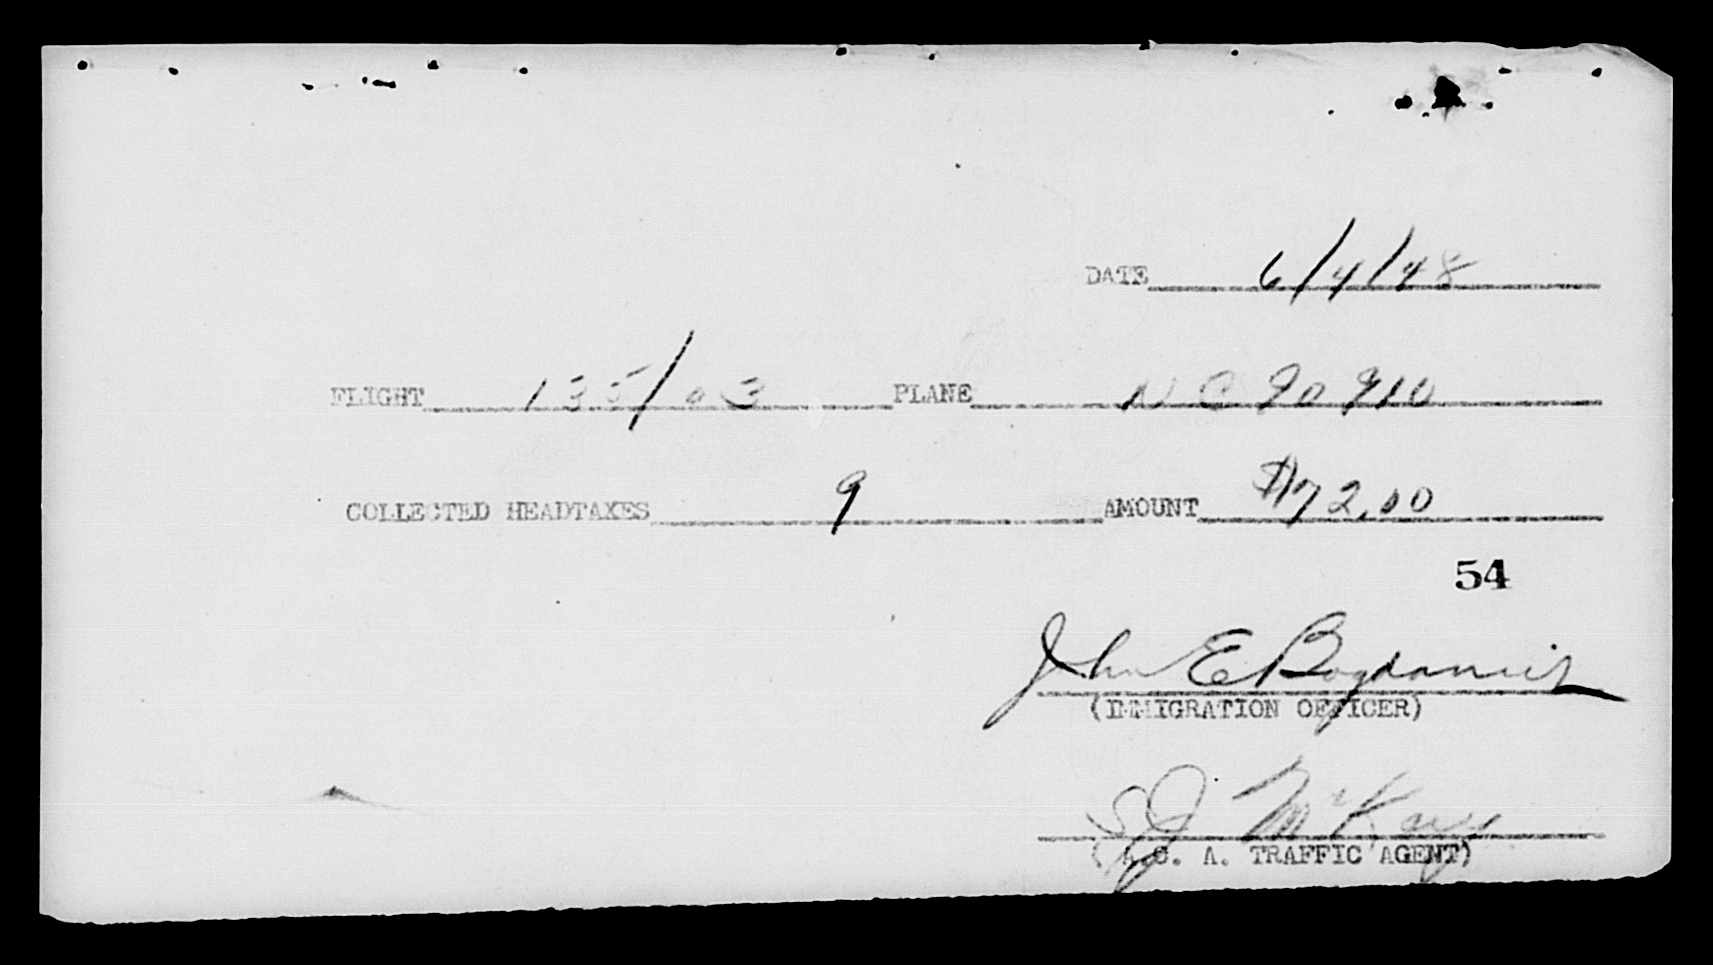 DATE 6/4/48
FLIGHT 135/03 PLANE NC 90910
COLLECTED HEADTAXES 9 AMOUNT $72.00
54
John E Bogdanich
(IMMIGRATION OFFICER)
S J McKay
(A.C. A. TRAFFIC AGENT)